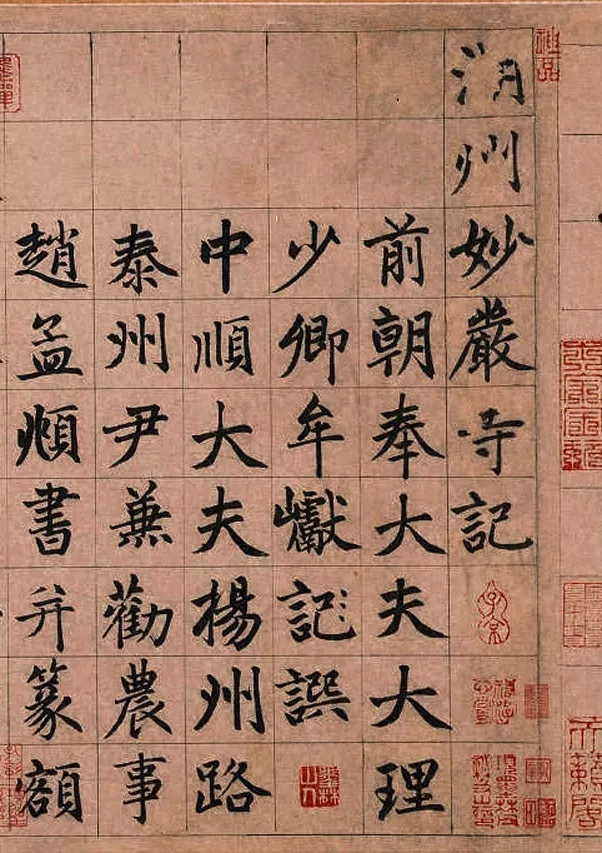 湖州妙嚴寺記
前朝奉大夫大理
少卿牟巘記撰
中順大夫揚州路
泰州尹兼勸農事
趙孟頫書并篆額
神品
子京
天籟閣